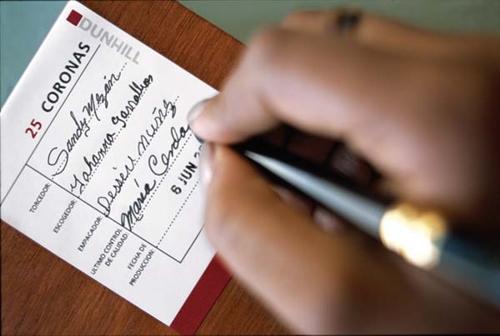 DUNHILL
25 CORONAS
TORCEDOR: Sandy
ESCOGEDOR: Yohanna
EMPACADOR: Desseis Muñoz
ULTIMO CONTROL DE CALIDAD: Maria
FECHA DE PRODUCCION: 6 JUN